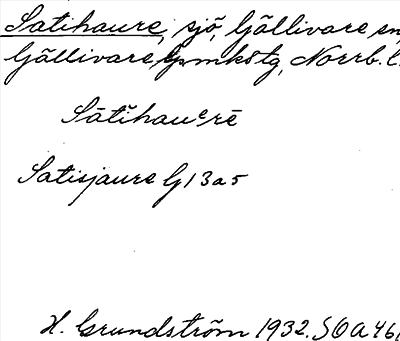 Satihaure, sjö, Gällivare sn,
Gällivare lpmkstg, Norrb. l.
Sātĭhauᵉrē
Satisjaure G 13a5
H. Grundström 1932. SOA 461